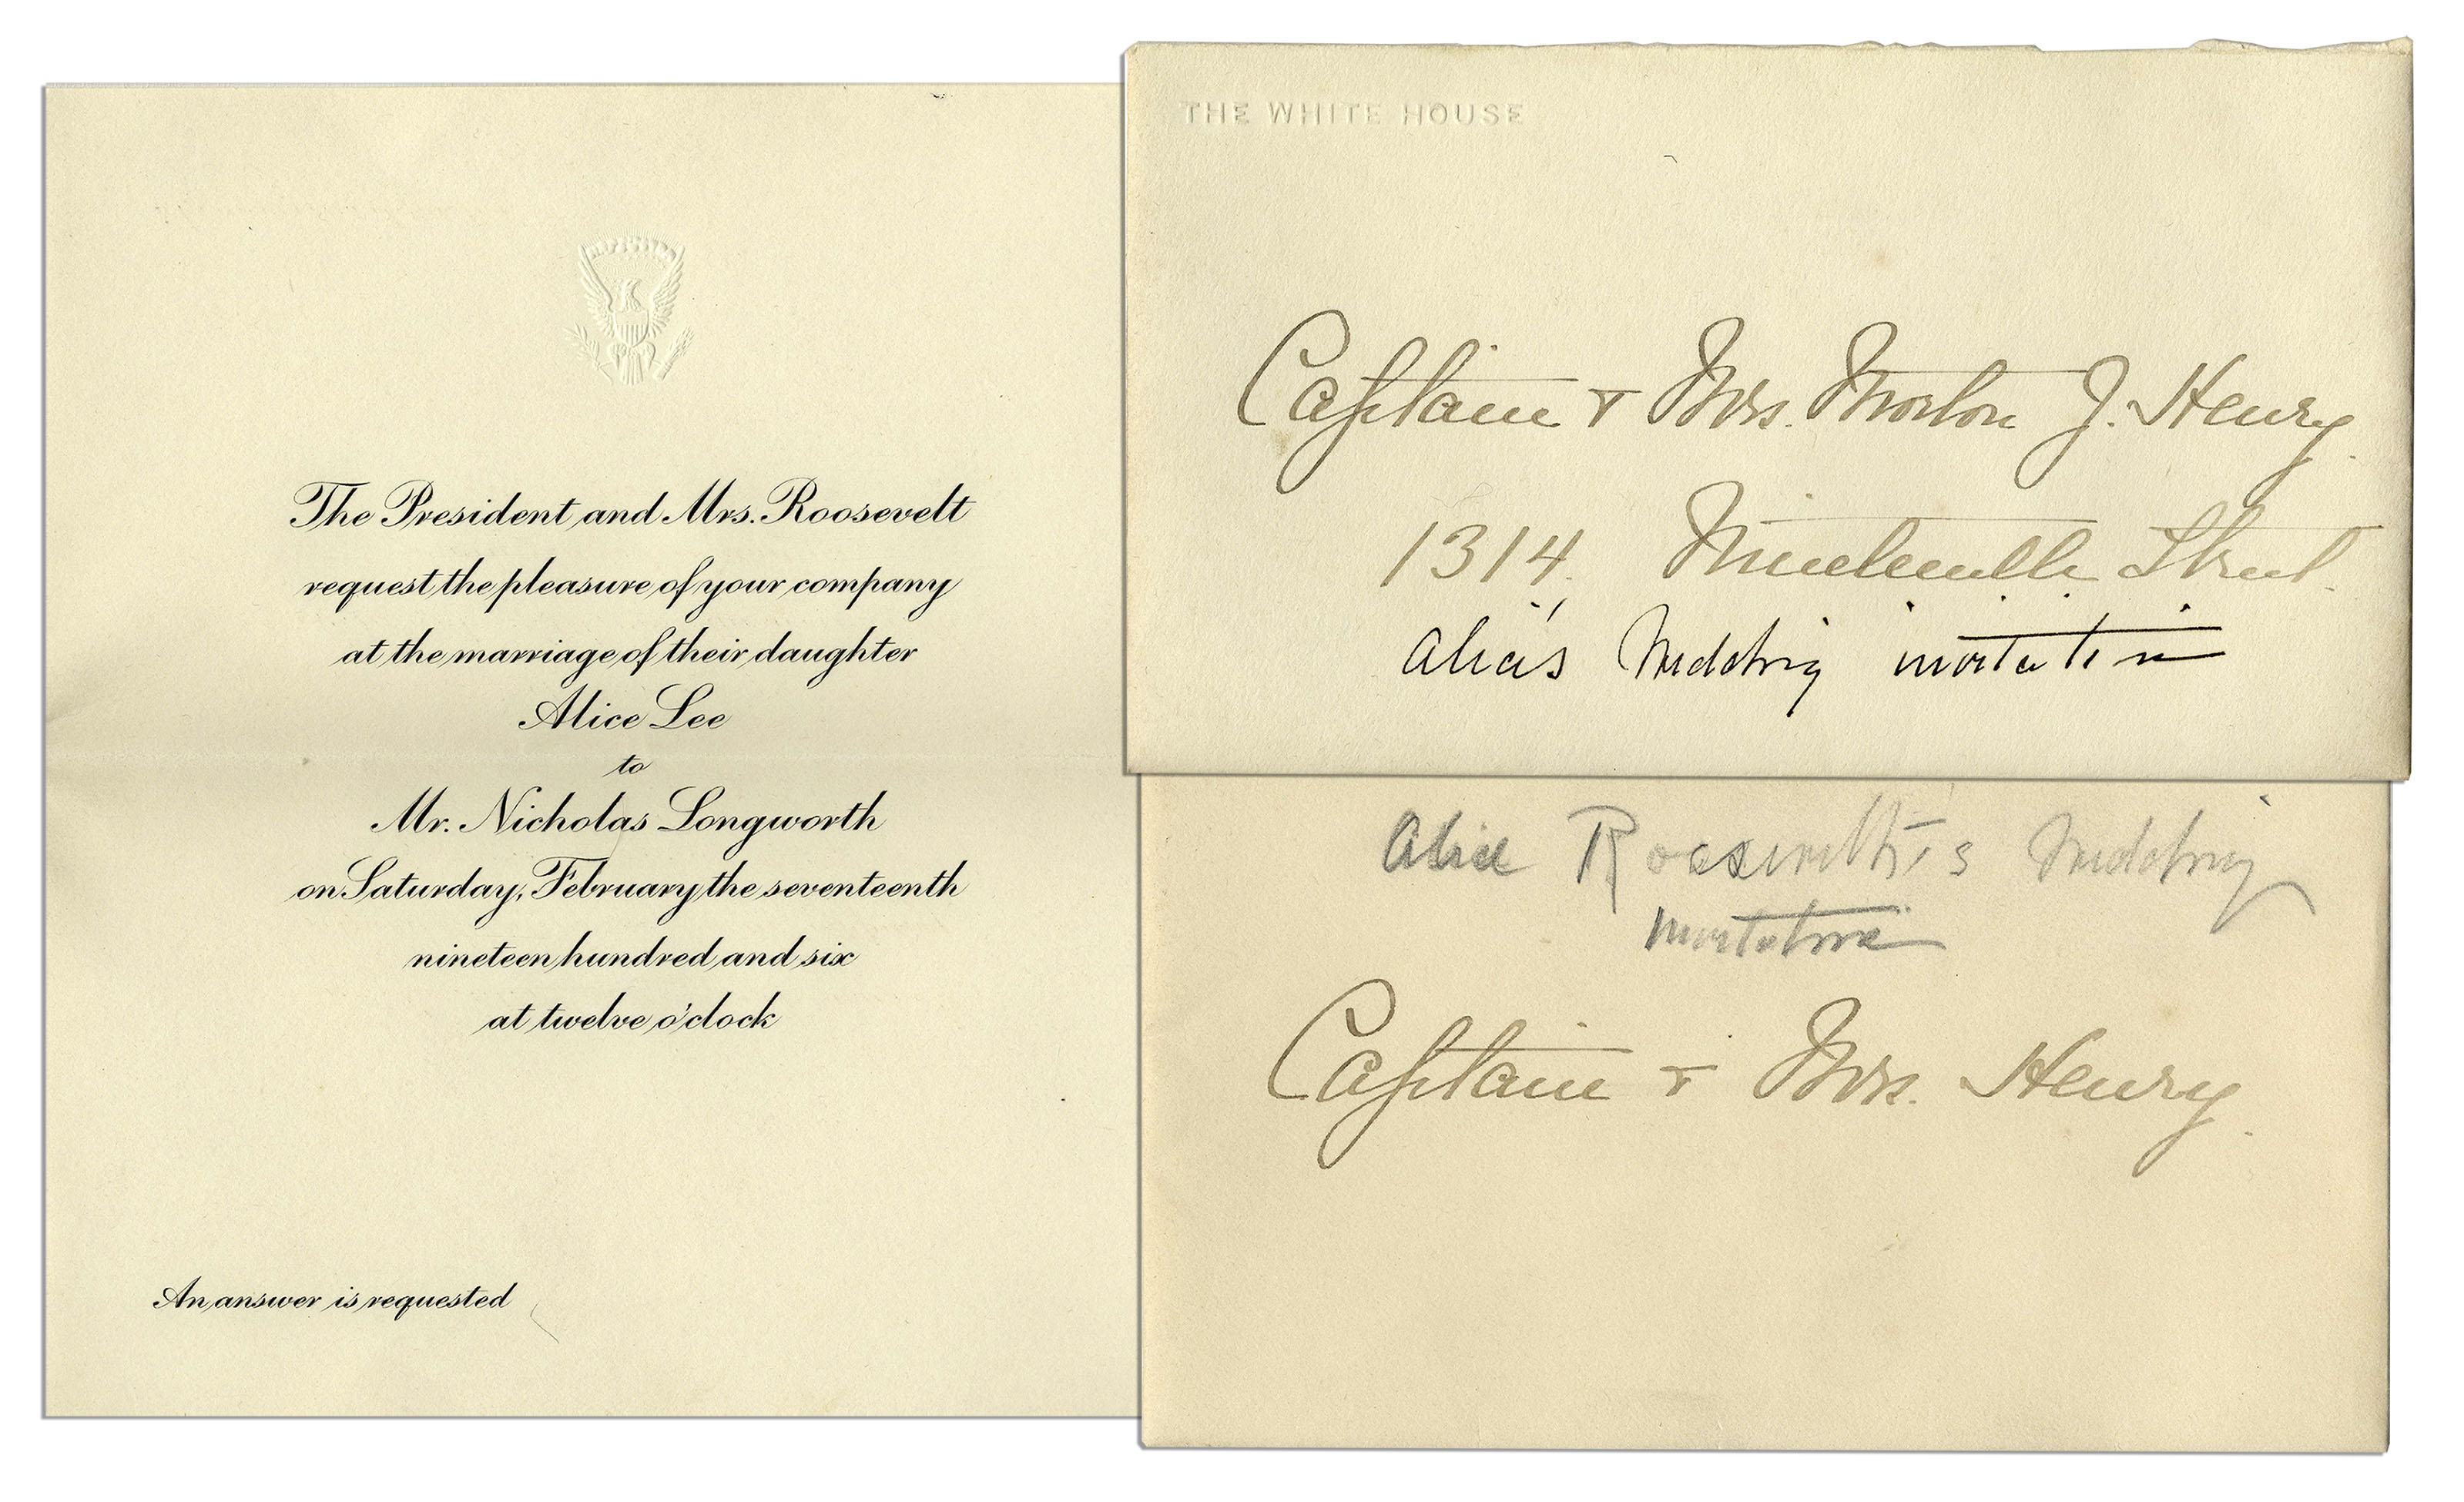 The President and Mrs. Roosevelt
request the pleasure of your company
at the marriage of their daughter
Alice Lee
to
Mr. Nicholas Longworth
on Saturday, February the seventeenth
nineteen hundred and six
at twelve o'clock
An answer is requested
THE WHITE HOUSE
Captain & Mrs. Morton J. Henry.
1314. Nineteenth Street.
Alice's Wedding invitation
Alice Roosevelt's Wedding
invitation
Captain & Mrs. Henry.